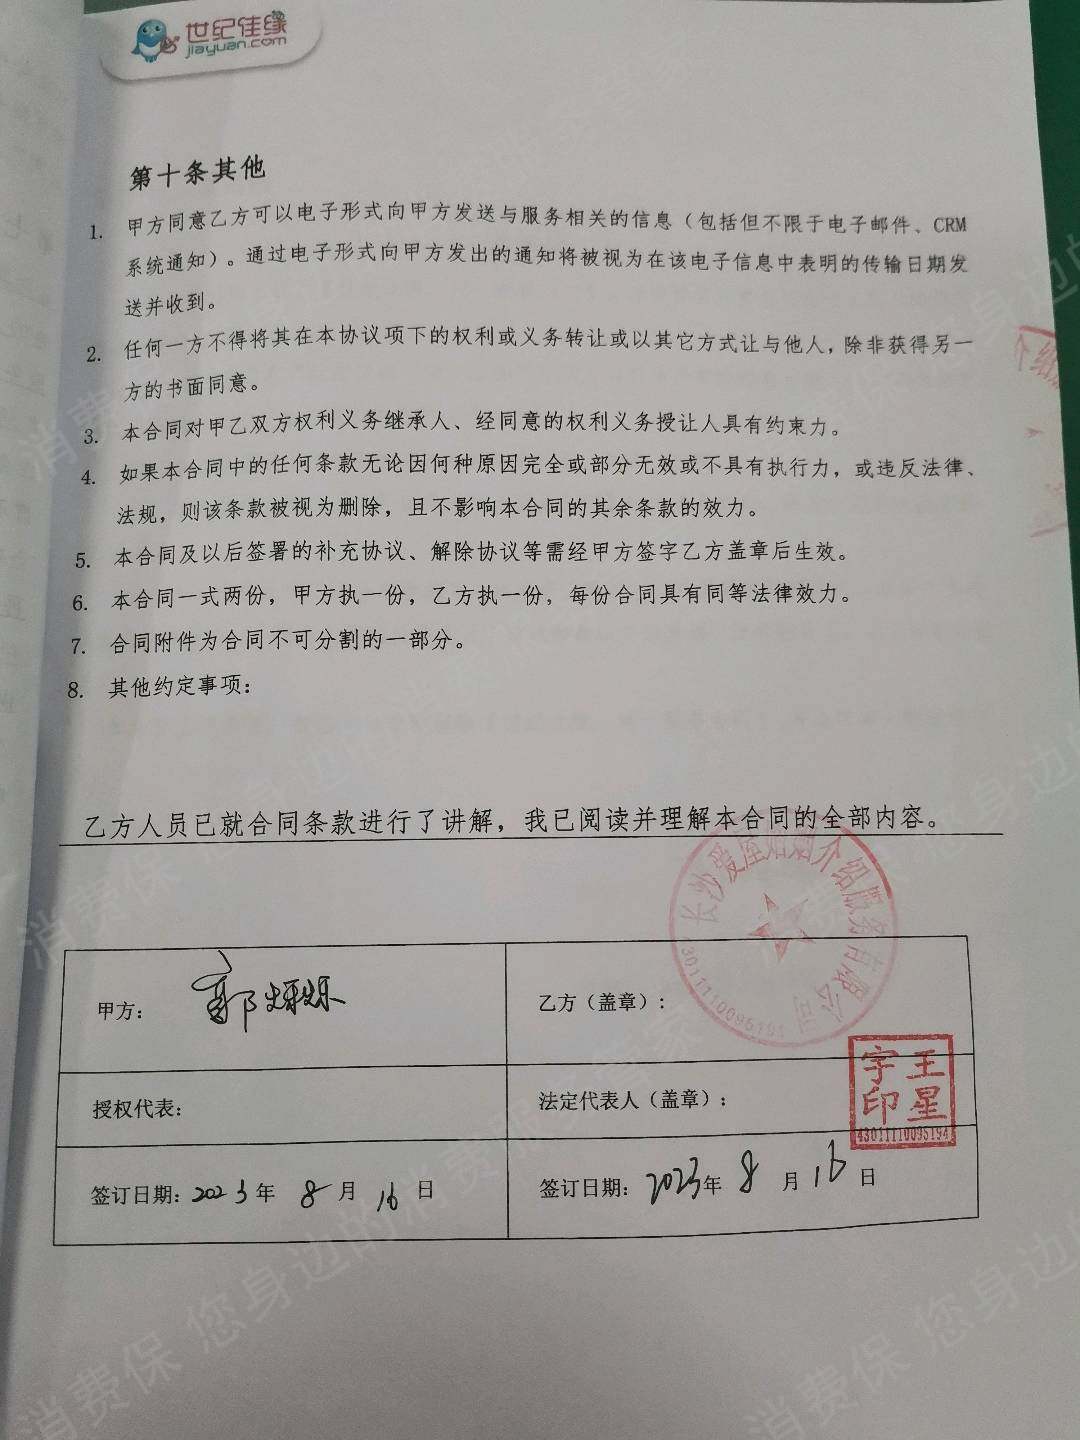 世纪佳缘
jiayuan.com
第十条其他
1. 甲方同意乙方可以电子形式向甲方发送与服务相关的信息（包括但不限于电子邮件、CRM
系统通知）。通过电子形式向甲方发出的通知将被视为在该电子信息中表明的传输日期发
送并收到。
2. 任何一方不得将其在本协议项下的权利或义务转让或以其它方式让与他人，除非获得另一
方的书面同意。
3. 本合同对甲乙双方权利义务继承人、经同意的权利义务授让人具有约束力。
4. 如果本合同中的任何条款无论因何种原因完全或部分无效或不具有执行力，或违反法律、
法规，则该条款被视为删除，且不影响本合同的其余条款的效力。
5. 本合同及以后签署的补充协议、解除协议等需经甲方签字乙方盖章后生效。
6. 本合同一式两份，甲方执一份，乙方执一份，每份合同具有同等法律效力。
7. 合同附件为合同不可分割的一部分。
8. 其他约定事项：
乙方人员已就合同条款进行了讲解，我已阅读并理解本合同的全部内容。
长沙爱笙婚姻介绍服务有限公司
甲方：
乙方（盖章）：
授权代表：
法定代表人（盖章）：
王星
宇印
43011110095194
签订日期：2023年 8月 16日
签订日期：2023年 8月 16日
介绍
消费保 您身边的消费服务管家